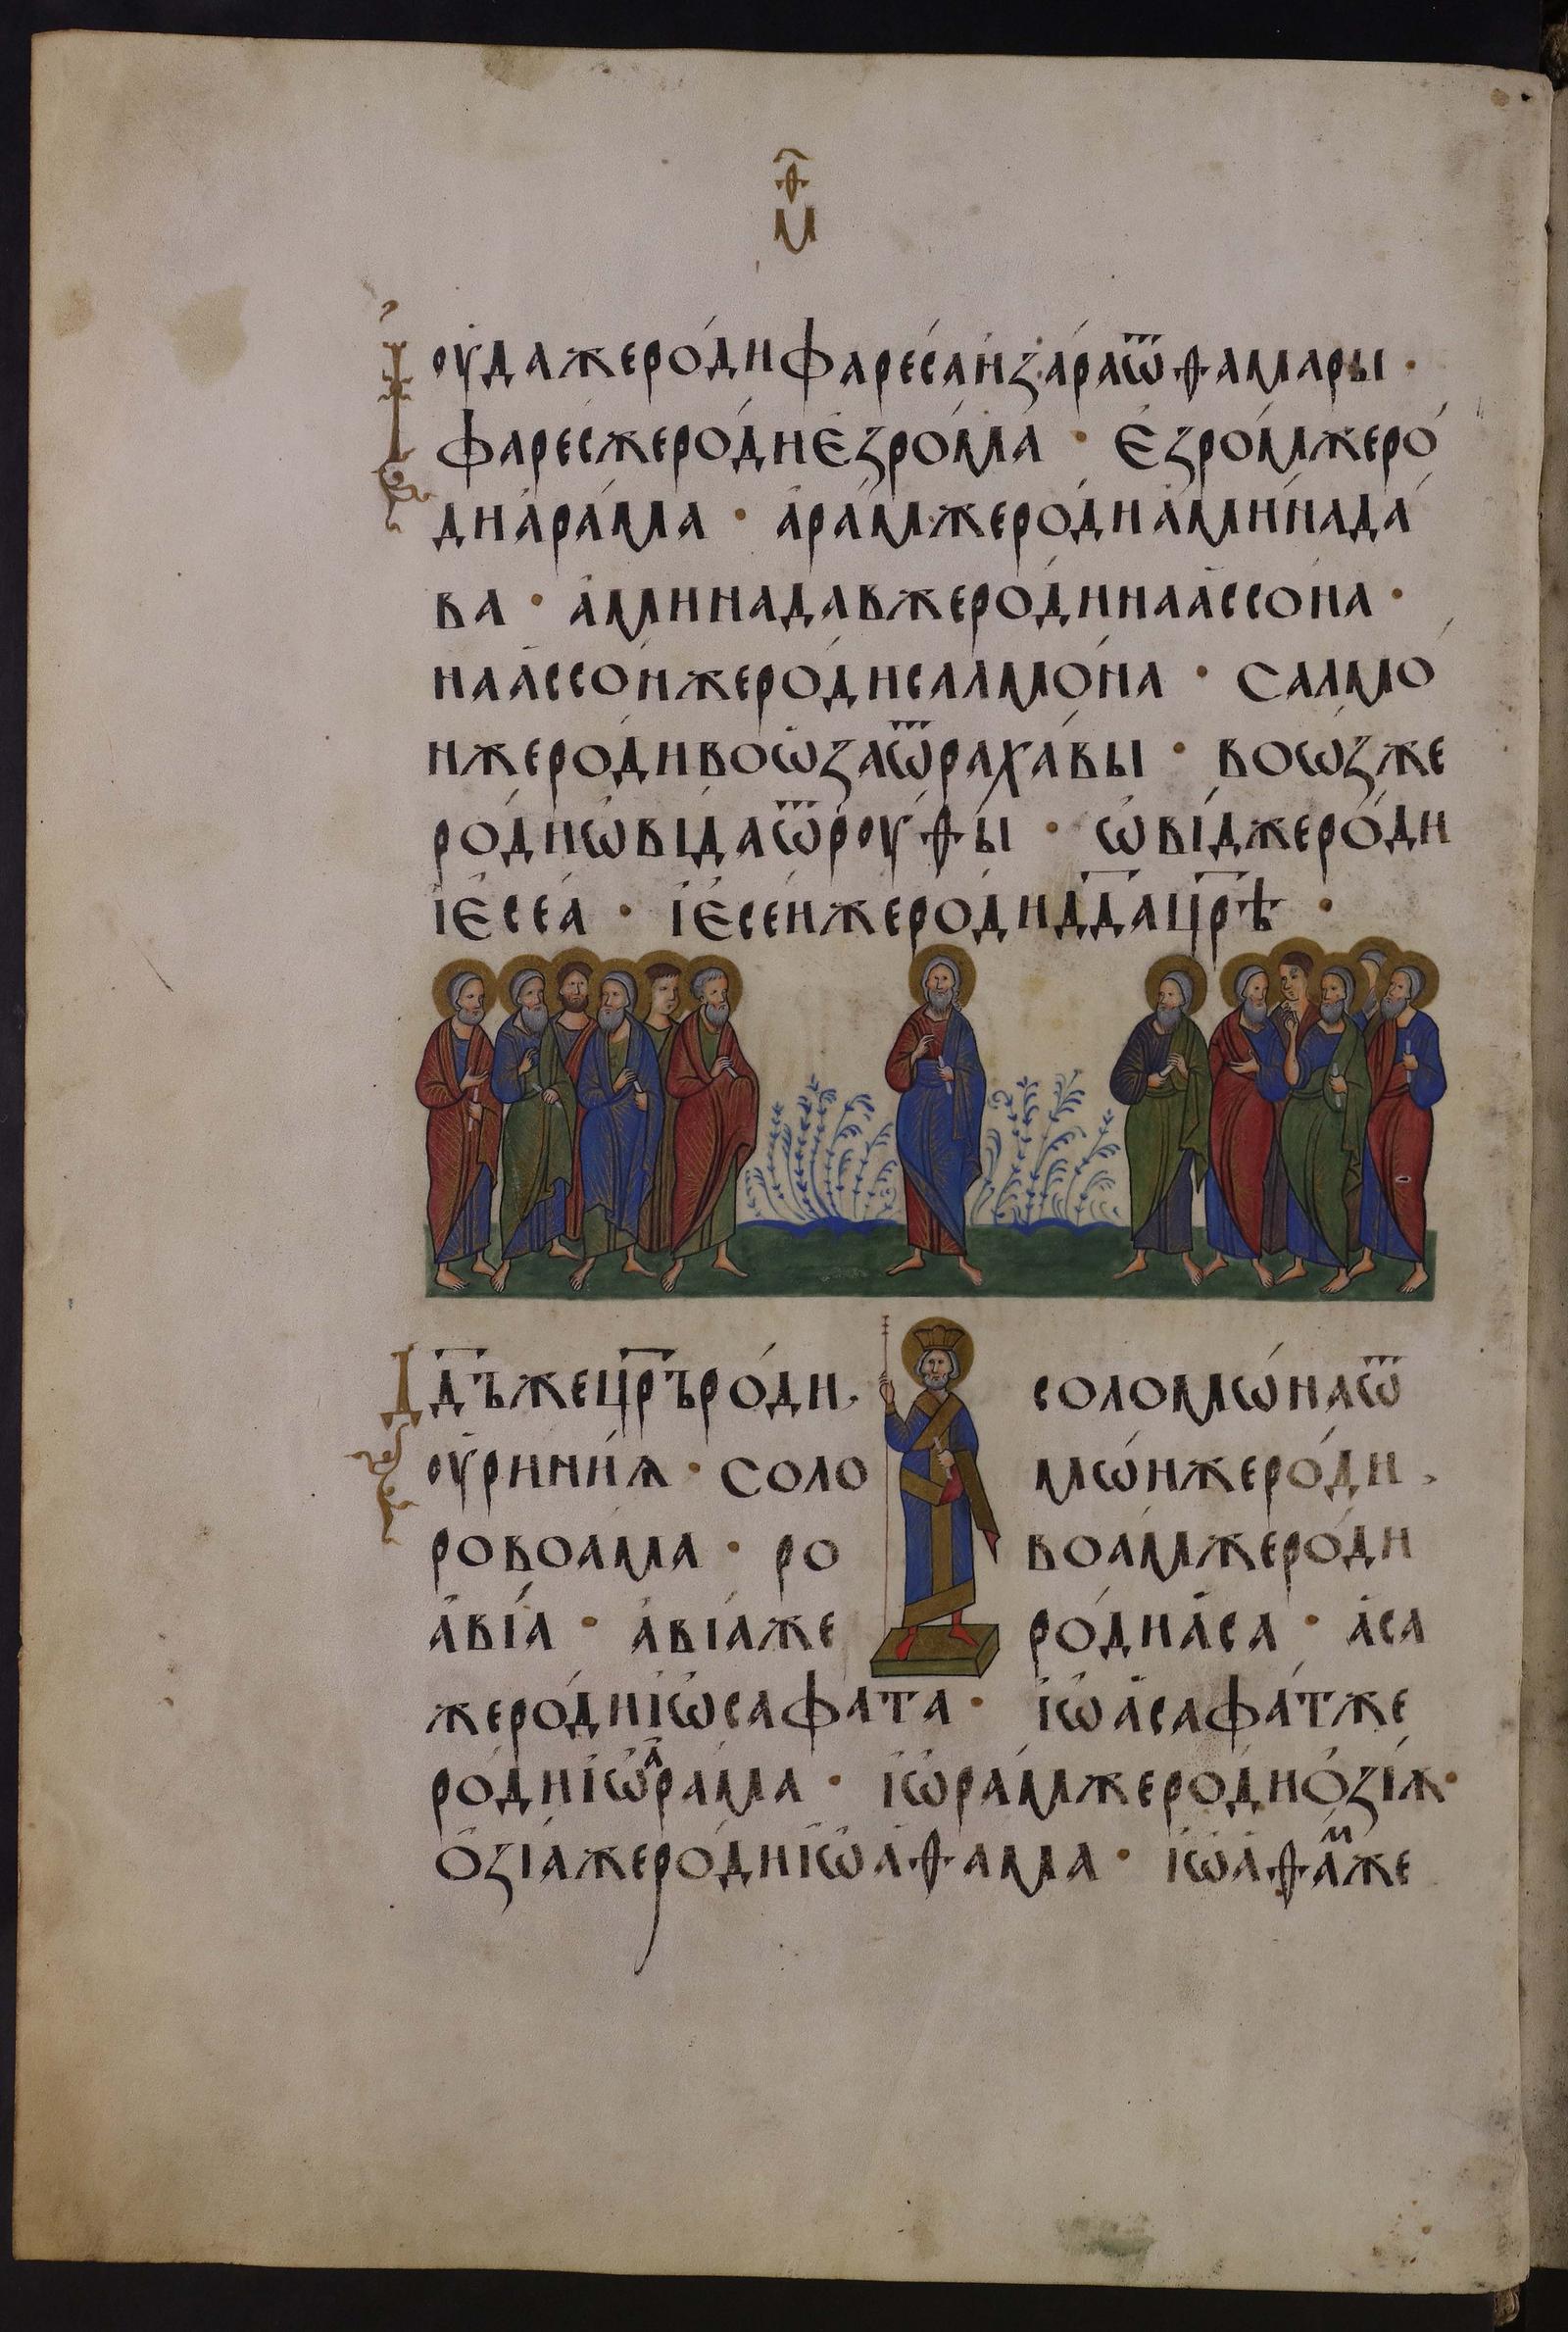 ѳ҃
м
Іоу́дажеро́дифаре́саиза́раѿѳамары ·
фаре́сжеро́диЕзро́ма · Езро́мжеро́
диара́ма · ара́мжеро́диами́нада́
ва · аминадавжеро́динаассо́на ·
наассо́нжеро́дисалмо́на · Салмо́
нжеро́дивоѡзаѿраха́вы · воѡзже
ро́диѡвідаѿроуѳы · ѡві́джеро́ди
іЕссеа · іЕсе́йжеро́дид҃дац҃рѣ ·
Дд҃ъжец҃ръро́ди, соломѡ́наѿ
оу҆рини́ѧ · Соло мѡ́нжеро́ди,
ровоама · ро воа́мжеро́ди
аві́а · аві́аже ро́диаса · аса
жеро́диіѡсафата · іѡасафа́тже
ро́диіѡара́ма · іѡра́мжеро́диОзі́ѫ·
Озі́ажеро́диіѡаѳама · іѡаѳа́мже